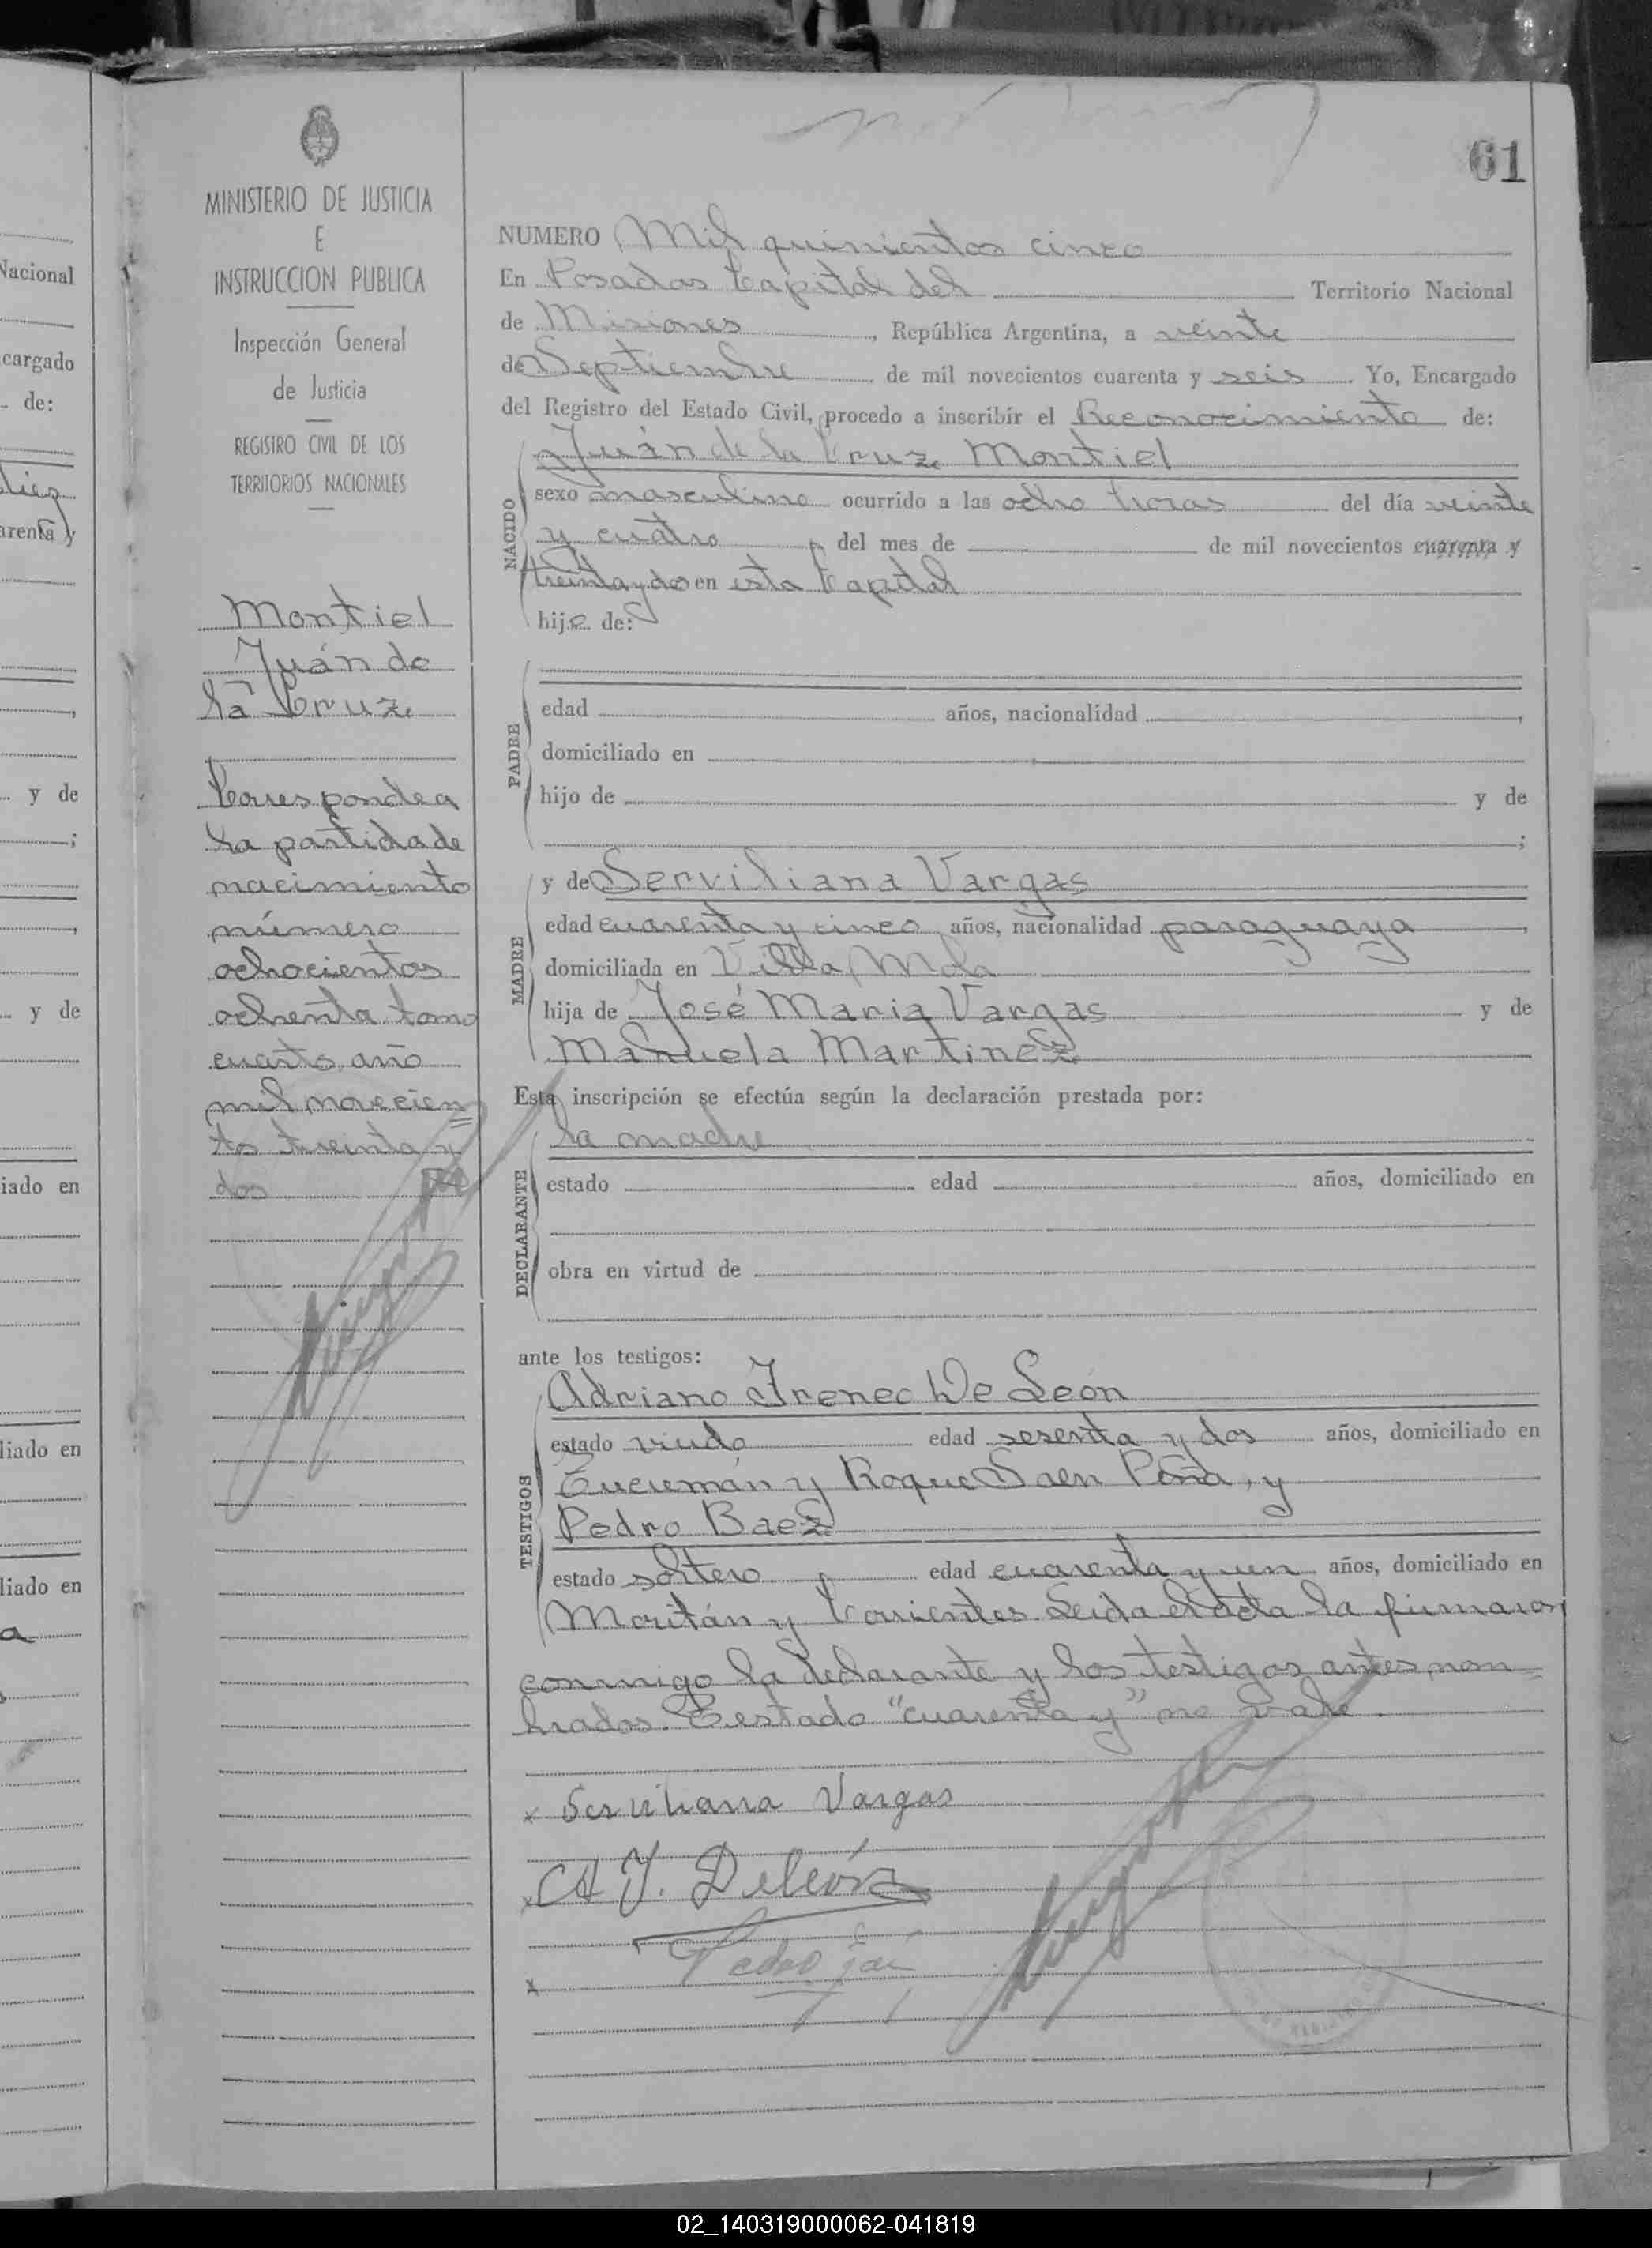 61
MINISTERIO DE JUSTICIA
E
INSTRUCCION PUBLICA
Inspección General
de Justicia
REGISTRO CIVIL DE LOS
TERRITORIOS NACIONALES
Montiel
Juán de
la Cruz
Corresponde a
la partida de
nacimiento
número
ochocientos
ochenta tomo
cuarto año
mil novecien
tos treinta y
dos
NUMERO Mil quinientos cinco
En Posadas Capital del Territorio Nacional
de Misiones, República Argentina, a veinte
de Septiembre de mil novecientos cuarenta y seis. Yo, Encargado
del Registro del Estado Civil, procedo a inscribir el Reconocimiento de:
NACIDO
Juán de la Cruz Montiel
sexo masculino ocurrido a las ocho horas del día veinte
y cuatro del mes de de mil novecientos cuarenta y
treinta y dos en esta Capital
hijo de:
PADRE
edad años, nacionalidad ,
domiciliado en
hijo de y de
;
MADRE
y de Serviliana Vargas
edad cuarenta y cinco años, nacionalidad paraguaya,
domiciliada en Villa Mola
hija de José Maria Vargas y de
Manuela Martinez
Esta inscripción se efectúa según la declaración prestada por:
DECLARANTE
la madre
estado edad años, domiciliado en
obra en virtud de
ante los testigos:
TESTIGOS
Adriano Ireneo De León
estado viudo edad sesenta y dos años, domiciliado en
Tucumán y Roque Saen Peña, y
Pedro Baez
estado soltero edad cuarenta y un años, domiciliado en
Moritán y Corrientes. Leida el acta la firmaron
conmigo la declarante y los testigos antes nom
brados. Testado "cuarenta y" no vale.
x Serviliana Vargas
x A J. Deleón
x Pedro
Nacional
cargado
de:
diez
arenta y
y de
;
y de
iado en
liado en
liado en
a
02_140319000062-041819